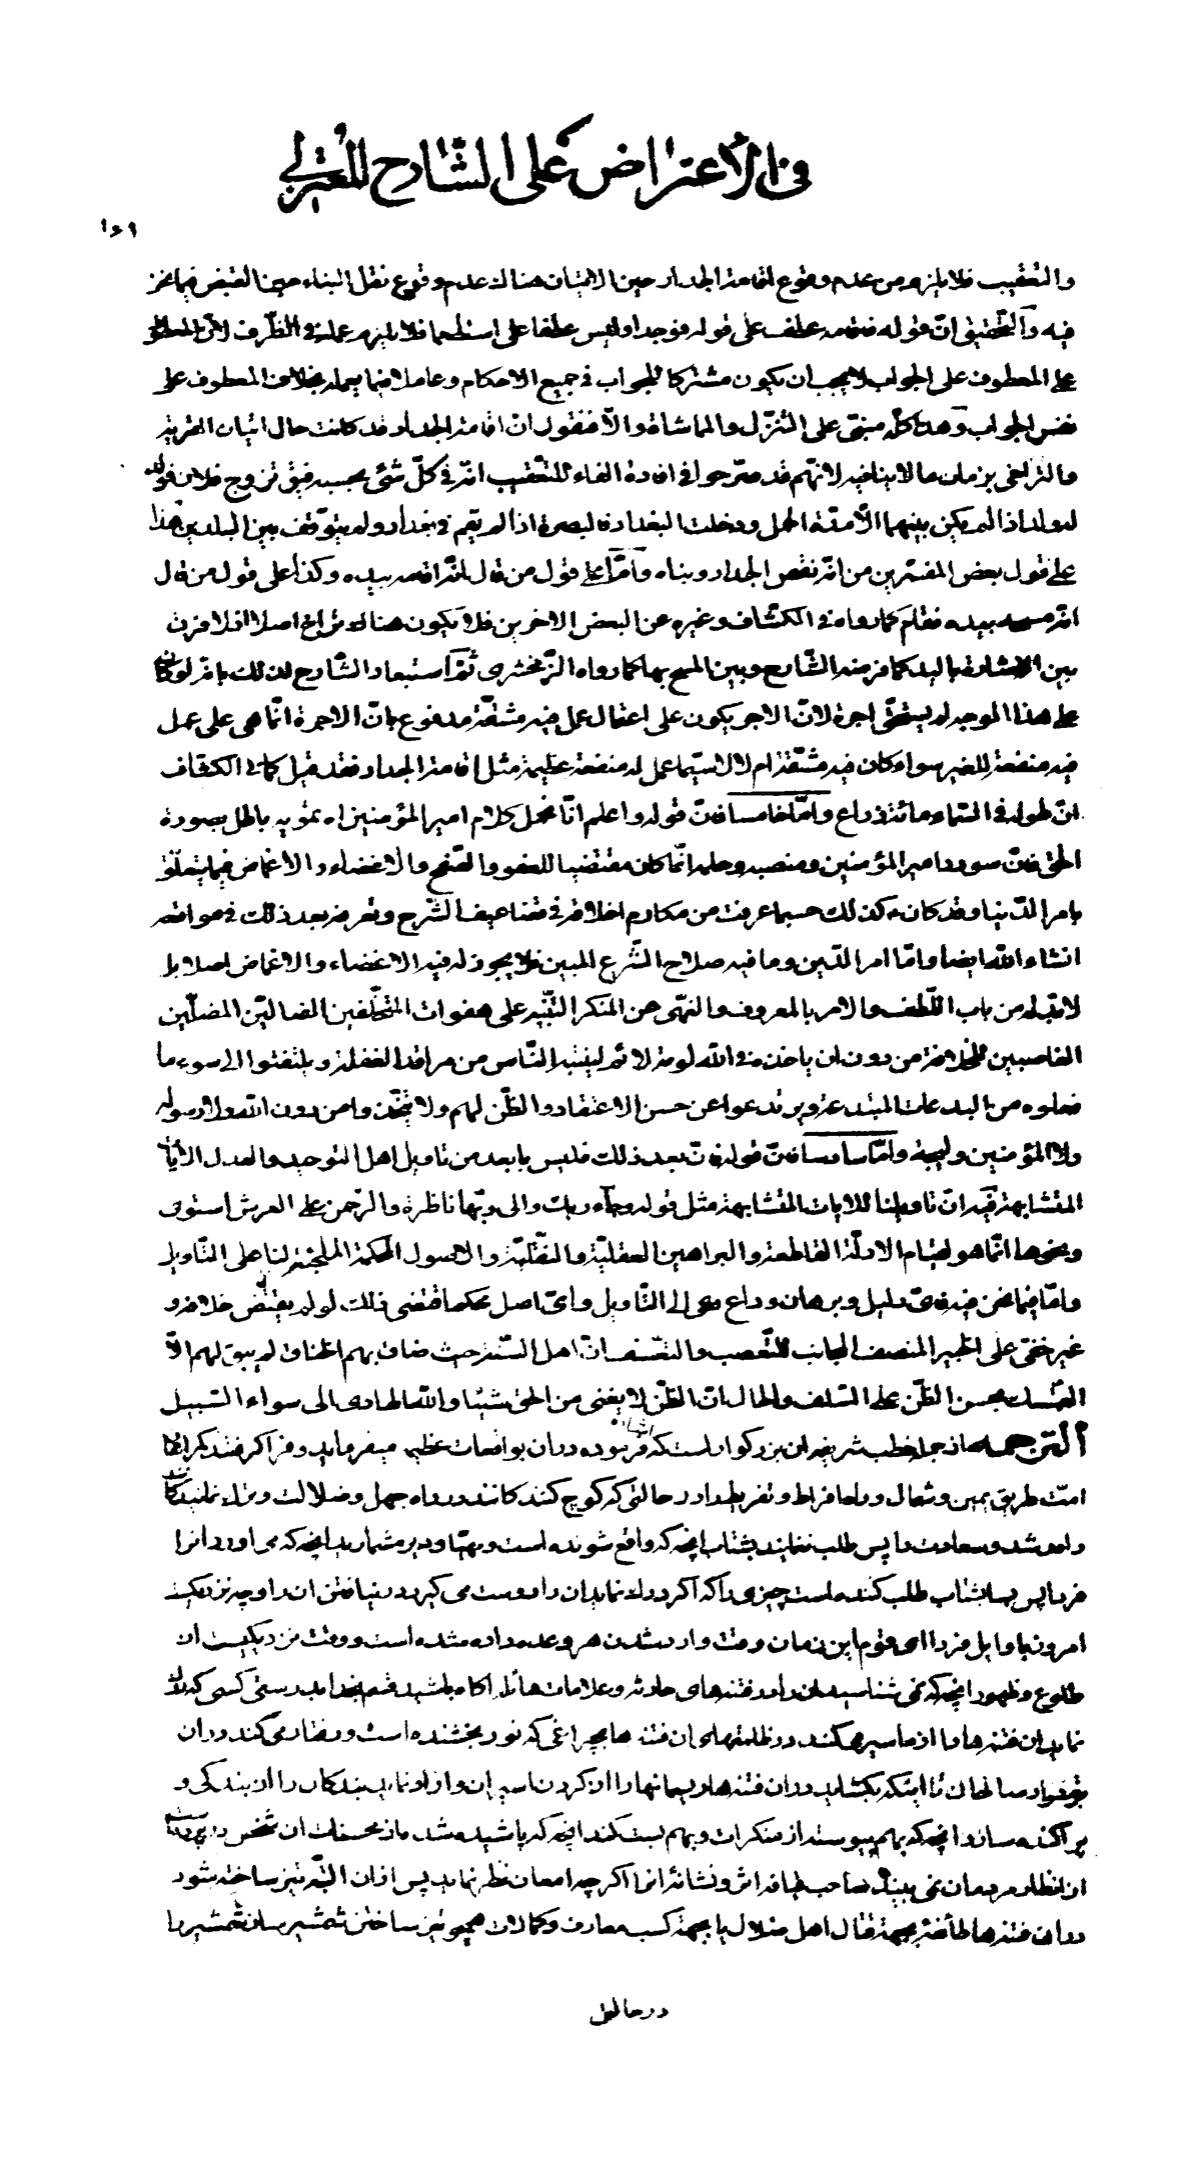 في الاعتراض على الشارح المعتزلي
١٥٩
والتعقيب فلا يلزم من عدم وقوع اقامة الجدار حين الاتيان هناك عدم وقوع نقل البناء حين القبض فيما نحن
فيه والتحقيق انّ قوله فاقامه عطف على قوله فوجدا وليس عطفا على استطعما فلا يلزم عمله في الظّرف لانّ المعطوف
على المعطوف على الجواب لا يجب ان يكون مشتركا للجواب في جميع الاحكام وعاملا فيما يعمله بخلاف المعطوف على
نفس الجواب وهذا كلّه مبنىّ على التنزّل والمماشاة والّا فنقول انّ اقامة الجدار قد كانت حال اتيان القرية
والتراخى بزمان ما لا ينافيه لانّهم قد صرّحوا في افادة الفاء للتّعقيب انّه في كلّ شئ بحسبه فيق تزوج فلان فولد
له ولد اذا لم يكن بينهما الّا مدّة الحمل ودخلت البغداد فالبصرة اذا لم يقم في بغداد ولم يتوّقف بين البلدين هذا
على قول بعض المفسّرين من انّه نقض الجدار وبناه وامّا على قول من قال انّه اقامه بيده وكذا على قول من قال
انّه مسحه بيده فقام كما رواه في الكشّاف وغيره عن البعض الاخرين فلا يكون هناك تراخ اصلا اذ لا فرق
بين الاشارة باليد كما فرضه الشّارح وبين المسح بها كما رواه الزّمخشرى ثمّ استبعاد الشّارح لذلك بانّه لو كان
على هذا الموجه لم يستحقّ اجرة لانّ الاجر يكون على اعتمال عمل فيه مشقّة مدفوع بانّ الاجرة انّما هى على عمل
فيه منفعة للغير سواء كان فيه مشقّة ام لا لا سيّما عمل له منفعة عظيمة مثل اقامة الجدار فقد قيل كما في الكشّاف
انّ طوله في السّماء مائة ذراع وامّا خامسا فلانّ قوله واعلم انّا نحمل كلام امير المؤمنين اه تمويه باطل بصورة
الحق فانّ سودد امير المؤمنين ومنصبه وحلمه انّما كان مقتضيا للعفو والصّفح والاغضاء والاغماض فيما يتعلّق
بامر الدّنيا وقد كان ع كذلك حسبما عرفت من مكارم اخلاقه في تضاعيف الشّرح وتعرفه بعد ذلك في مواقعه
انشاء اللّه ايضا وامّا امر الدّين وما فيه صلاح الشّرع المبين فلا يجوز له فيه الاغضاء والاغماض اصلا بل
لا بدّ له من باب اللّطف والامر بالمعروف والنّهى عن المنكر التّنبيه على هفوات المتخلّفين الضالّين المضلّين
الغاصبين للخلافة من دون ان ياخذه في اللّه لومة لائم ليتنبه النّاس من مراقد الغفلة ويلتفتوا الى سوء ما
فعلوه من البدعات المبتدعة ويرتدعوا عن حسن الاعتقاد والظّن لهم ولا يتّخذوا من دون اللّه ولا رسوله
ولا المؤمنين وليجة وامّا سادسا فلانّ قوله فانّ بعد ذلك فليس بابعد من تاويل اهل التوحيد والعدل الآيات
المتشابهة فيه انّ تاويلنا للايات المتشابهة مثل قوله وجاء ربك والى ربّها ناظرة والرّحمن على العرش استوى
ونحوها انّما هو لقيام الادلّة القاطعة والبراهين العقليّة والنّقليّة والاصول المحكمة الملجئة لنا على التّاويل
وامّا فيما نحن فيه فاىّ دليل وبرهان وداع دعى الى التّاويل واىّ اصل محكم اقتضى ذلك لو لم يقتض خلافه و
غير خفىّ على الخبير المنصف المجانب للتّعصب والتعسّف انّ اهل السّنّة حيث ضاق بهم الخناق لم يبق لهم الّا
التمسّك بحسن الظّن على السّلف والحال انّ الظّن لا يغنى من الحق شيئا واللّه الهادى الى سواء السّبيل
الترجمه از جمله خطب شريفه آن بزركوار است كه اشاره فرموده در ان بواقعات عظيمه ميفرمايد وفرا كرفتند كمراهان
امّت طريق يمين وشمال وراه افراط وتفريط را در حالتى كه كوچ كننده كانند در راه جهل وضلالت وترك نماينده كانند
راه رشد وسعادت را پس طلب ننمائيد بشتاب انچه كه واقع شونده است ومهيّا ودير مشماريد انچه كه مى اورد انرا
فردا پس بسا شتاب طلب كننده است چيزى را كه اكر درك نمايد ان را دوست مى كيرد در نيافتن ان را وچه نزديكست
امروز باوايل فردا اى قوم اين زمان وقت وارد شدن هر وعده داده شده است ووقت نزديكيست از
طلوع وظهور انچه كه نمى شناسيد ان را از فتنه هاى حادثه وعلامات هائله اكاه باشيد قسم بخدا بدرستى كسى كه درك
نمايد ان فتنه ها را از ما سير ميكند در ظلمتهاى ان فتنه ها بچراغى كه نور بخشنده است ورفتار مى كند در ان
بر قرار صالحان تا اينكه بكشايد در ان فتنه ها ريسمانها را از كردن اسيران وازاد نمايد بندكان را از بندكى و
پراكنده سازد انچه كه بهم پيوسته از منكرات وبهم بست كند انچه كه پاشيده شد از محسنات ان شخص در پرده
از انظار مردمان نمى بيند صاحب قيافه اثر ونشانه انرا اكر چه امعان نظر نمايد پس از ان البتّه تيز ساخته شود
در ان فتنه ها طائفه بجهة قتال اهل ضلال يا بجهة كسب معارف وكمالات همچو تيز ساختن شمشير ساز شمشير را
در حالتى